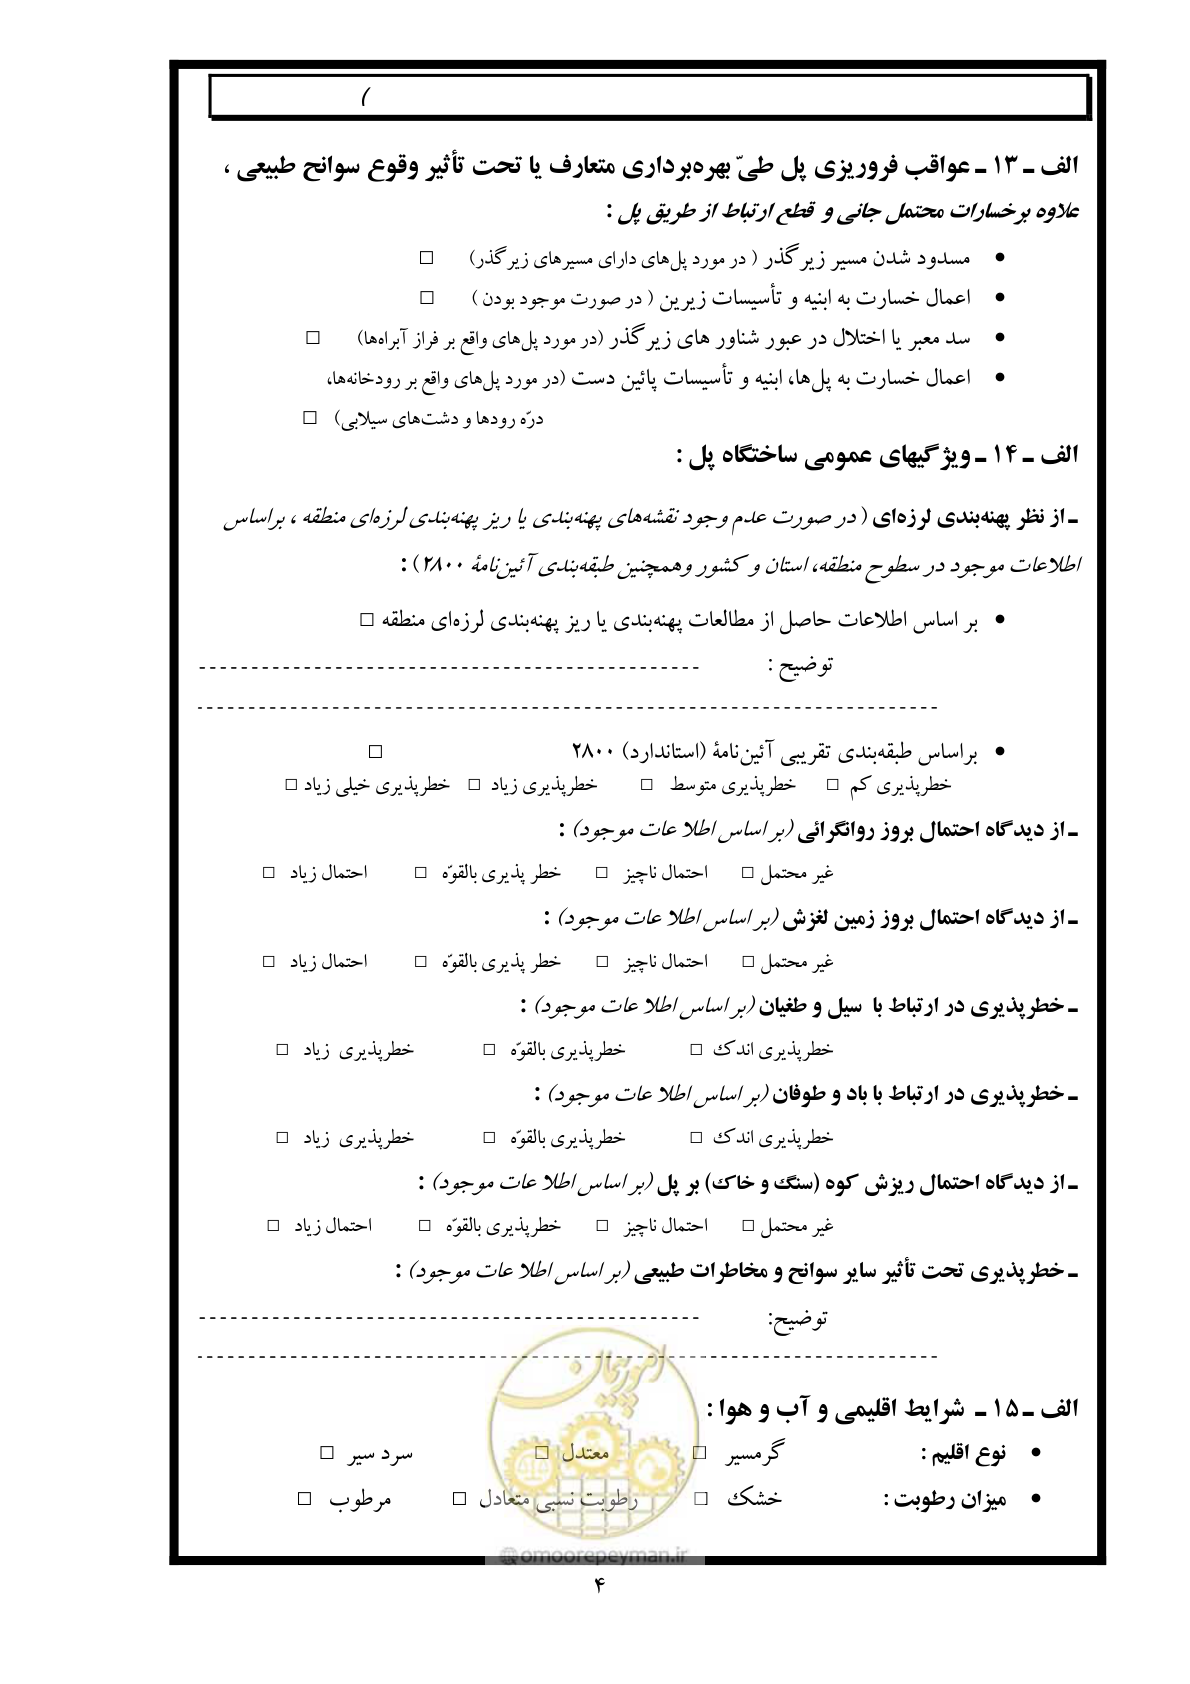 )
الف ـ ۱۳ ـ عواقب فروریزی پل طیّ بهره‌برداری متعارف یا تحت تأثیر وقوع سوانح طبیعی ،
علاوه بر خسارات محتمل جانی و قطع ارتباط از طریق پل :
• مسدود شدن مسیر زیرگذر ( در مورد پل‌های دارای مسیرهای زیرگذر) □
• اعمال خسارت به ابنیه و تأسیسات زیرین ( در صورت موجود بودن ) □
• سد معبر یا اختلال در عبور شناور های زیرگذر (در مورد پل‌های واقع بر فراز آبراه‌ها) □
• اعمال خسارت به پل‌ها، ابنیه و تأسیسات پائین دست (در مورد پل‌های واقع بر رودخانه‌ها،
درّه رودها و دشت‌های سیلابی) □
الف ـ ۱۴ ـ ویژگیهای عمومی ساختگاه پل :
ـ از نظر پهنه‌بندی لرزه‌ای ( در صورت عدم وجود نقشه‌های پهنه‌بندی یا ریز پهنه‌بندی لرزه‌ای منطقه ، براساس
اطلاعات موجود در سطوح منطقه، استان و کشور وهمچنین طبقه‌بندی آئین‌نامۀ ۲۸۰۰ ) :
• بر اساس اطلاعات حاصل از مطالعات پهنه‌بندی یا ریز پهنه‌بندی لرزه‌ای منطقه □
توضیح : ------------------------------------------------
-----------------------------------------------------------------------
• براساس طبقه‌بندی تقریبی آئین‌نامۀ (استاندارد) ۲۸۰۰ □
خطرپذیری کم □ خطرپذیری متوسط □ خطرپذیری زیاد □ خطرپذیری خیلی زیاد □
ـ از دیدگاه احتمال بروز روانگرائی (بر اساس اطلاعات موجود) :
غیر محتمل □ احتمال ناچیز □ خطر پذیری بالقوّه □ احتمال زیاد □
ـ از دیدگاه احتمال بروز زمین لغزش (بر اساس اطلاعات موجود) :
غیر محتمل □ احتمال ناچیز □ خطر پذیری بالقوّه □ احتمال زیاد □
ـ خطرپذیری در ارتباط با سیل و طغیان (بر اساس اطلاعات موجود) :
خطرپذیری اندک □ خطرپذیری بالقوّه □ خطرپذیری زیاد □
ـ خطرپذیری در ارتباط با باد و طوفان (بر اساس اطلاعات موجود) :
خطرپذیری اندک □ خطرپذیری بالقوّه □ خطرپذیری زیاد □
ـ از دیدگاه احتمال ریزش کوه (سنگ و خاک) بر پل (بر اساس اطلاعات موجود) :
غیر محتمل □ احتمال ناچیز □ خطرپذیری بالقوّه □ احتمال زیاد □
ـ خطرپذیری تحت تأثیر سایر سوانح و مخاطرات طبیعی (بر اساس اطلاعات موجود) :
توضیح: ------------------------------------------------
-----------------------------------------------------------------------
امور پیمان
الف ـ ۱۵ ـ شرایط اقلیمی و آب و هوا :
• نوع اقلیم : گرمسیر □ معتدل □ سرد سیر □
• میزان رطوبت : خشک □ رطوبت نسبی متعادل □ مرطوب □
@omoorepeyman.ir
۴